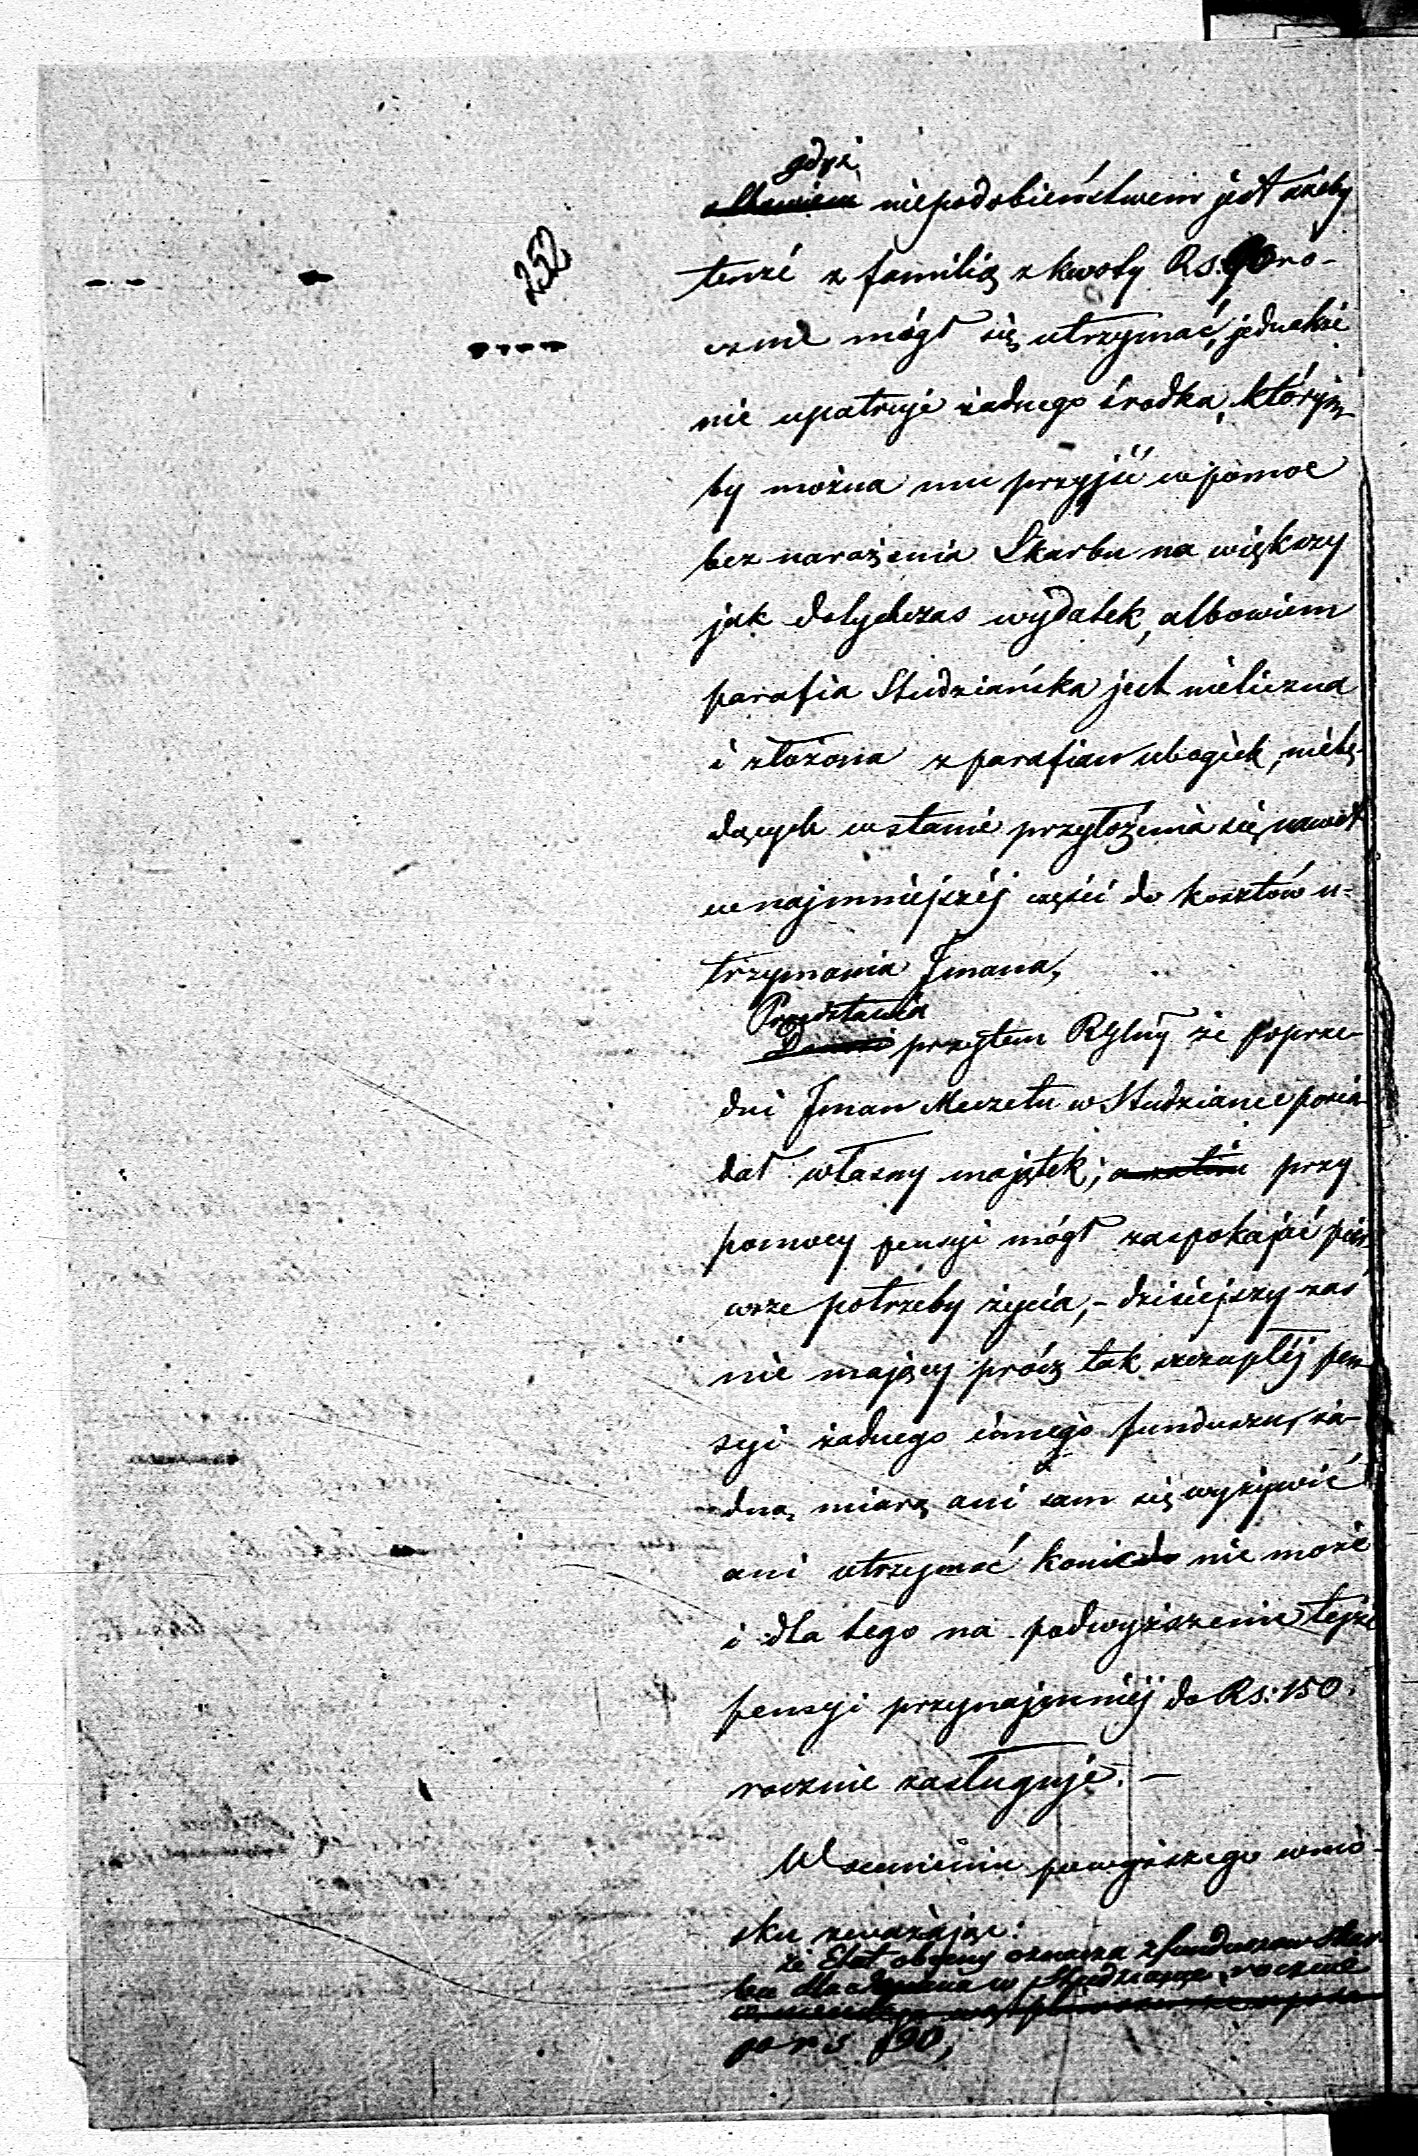 252
gdyż
albowiem niepodobieństwem jest ażeby
tenże z familią z kwoty Rs: 90 ro-
cznie mógł się utrzymać, jednakże
nie upatruje żadnego środka, którym
by można mu przyjść w pomoc
bez narażenia Skarbu na większy
jak dotychczas wydatek, albowiem
parafia Studziańska jest nieliczna
i złożona z parafian ubogich, niebę-
dących w stanie przyłożenia się nawet
w najmniejszéj części do kosztów u-
trzymania Imana,
Przedstawia
Donosi przytem R Glny że poprze-
dni Iman Meczetu w Studziance posia-
dał własny majątek, a zatem przy
pomocy pensyi mógł zaspokajać pier-
wsze potrzeby życia, - dzisiejszy zaś
nie mający prócz tak szczupłéj pen-
syi żadnego innego funduszu, ża-
dną miarą ani sam się wyżywić
ani utrzymać konia do nie może
i dla tego na podwyższenie tejże
pensyi przynajmniéj do Rs: 150.
rocznie zasługuje. -
W ocenieniu powyższego wnio-
sku zważając:
że Etat obecny oznacza z funduszów Skar-
bu dla Imana w Studziance rocznie
po rs 90,